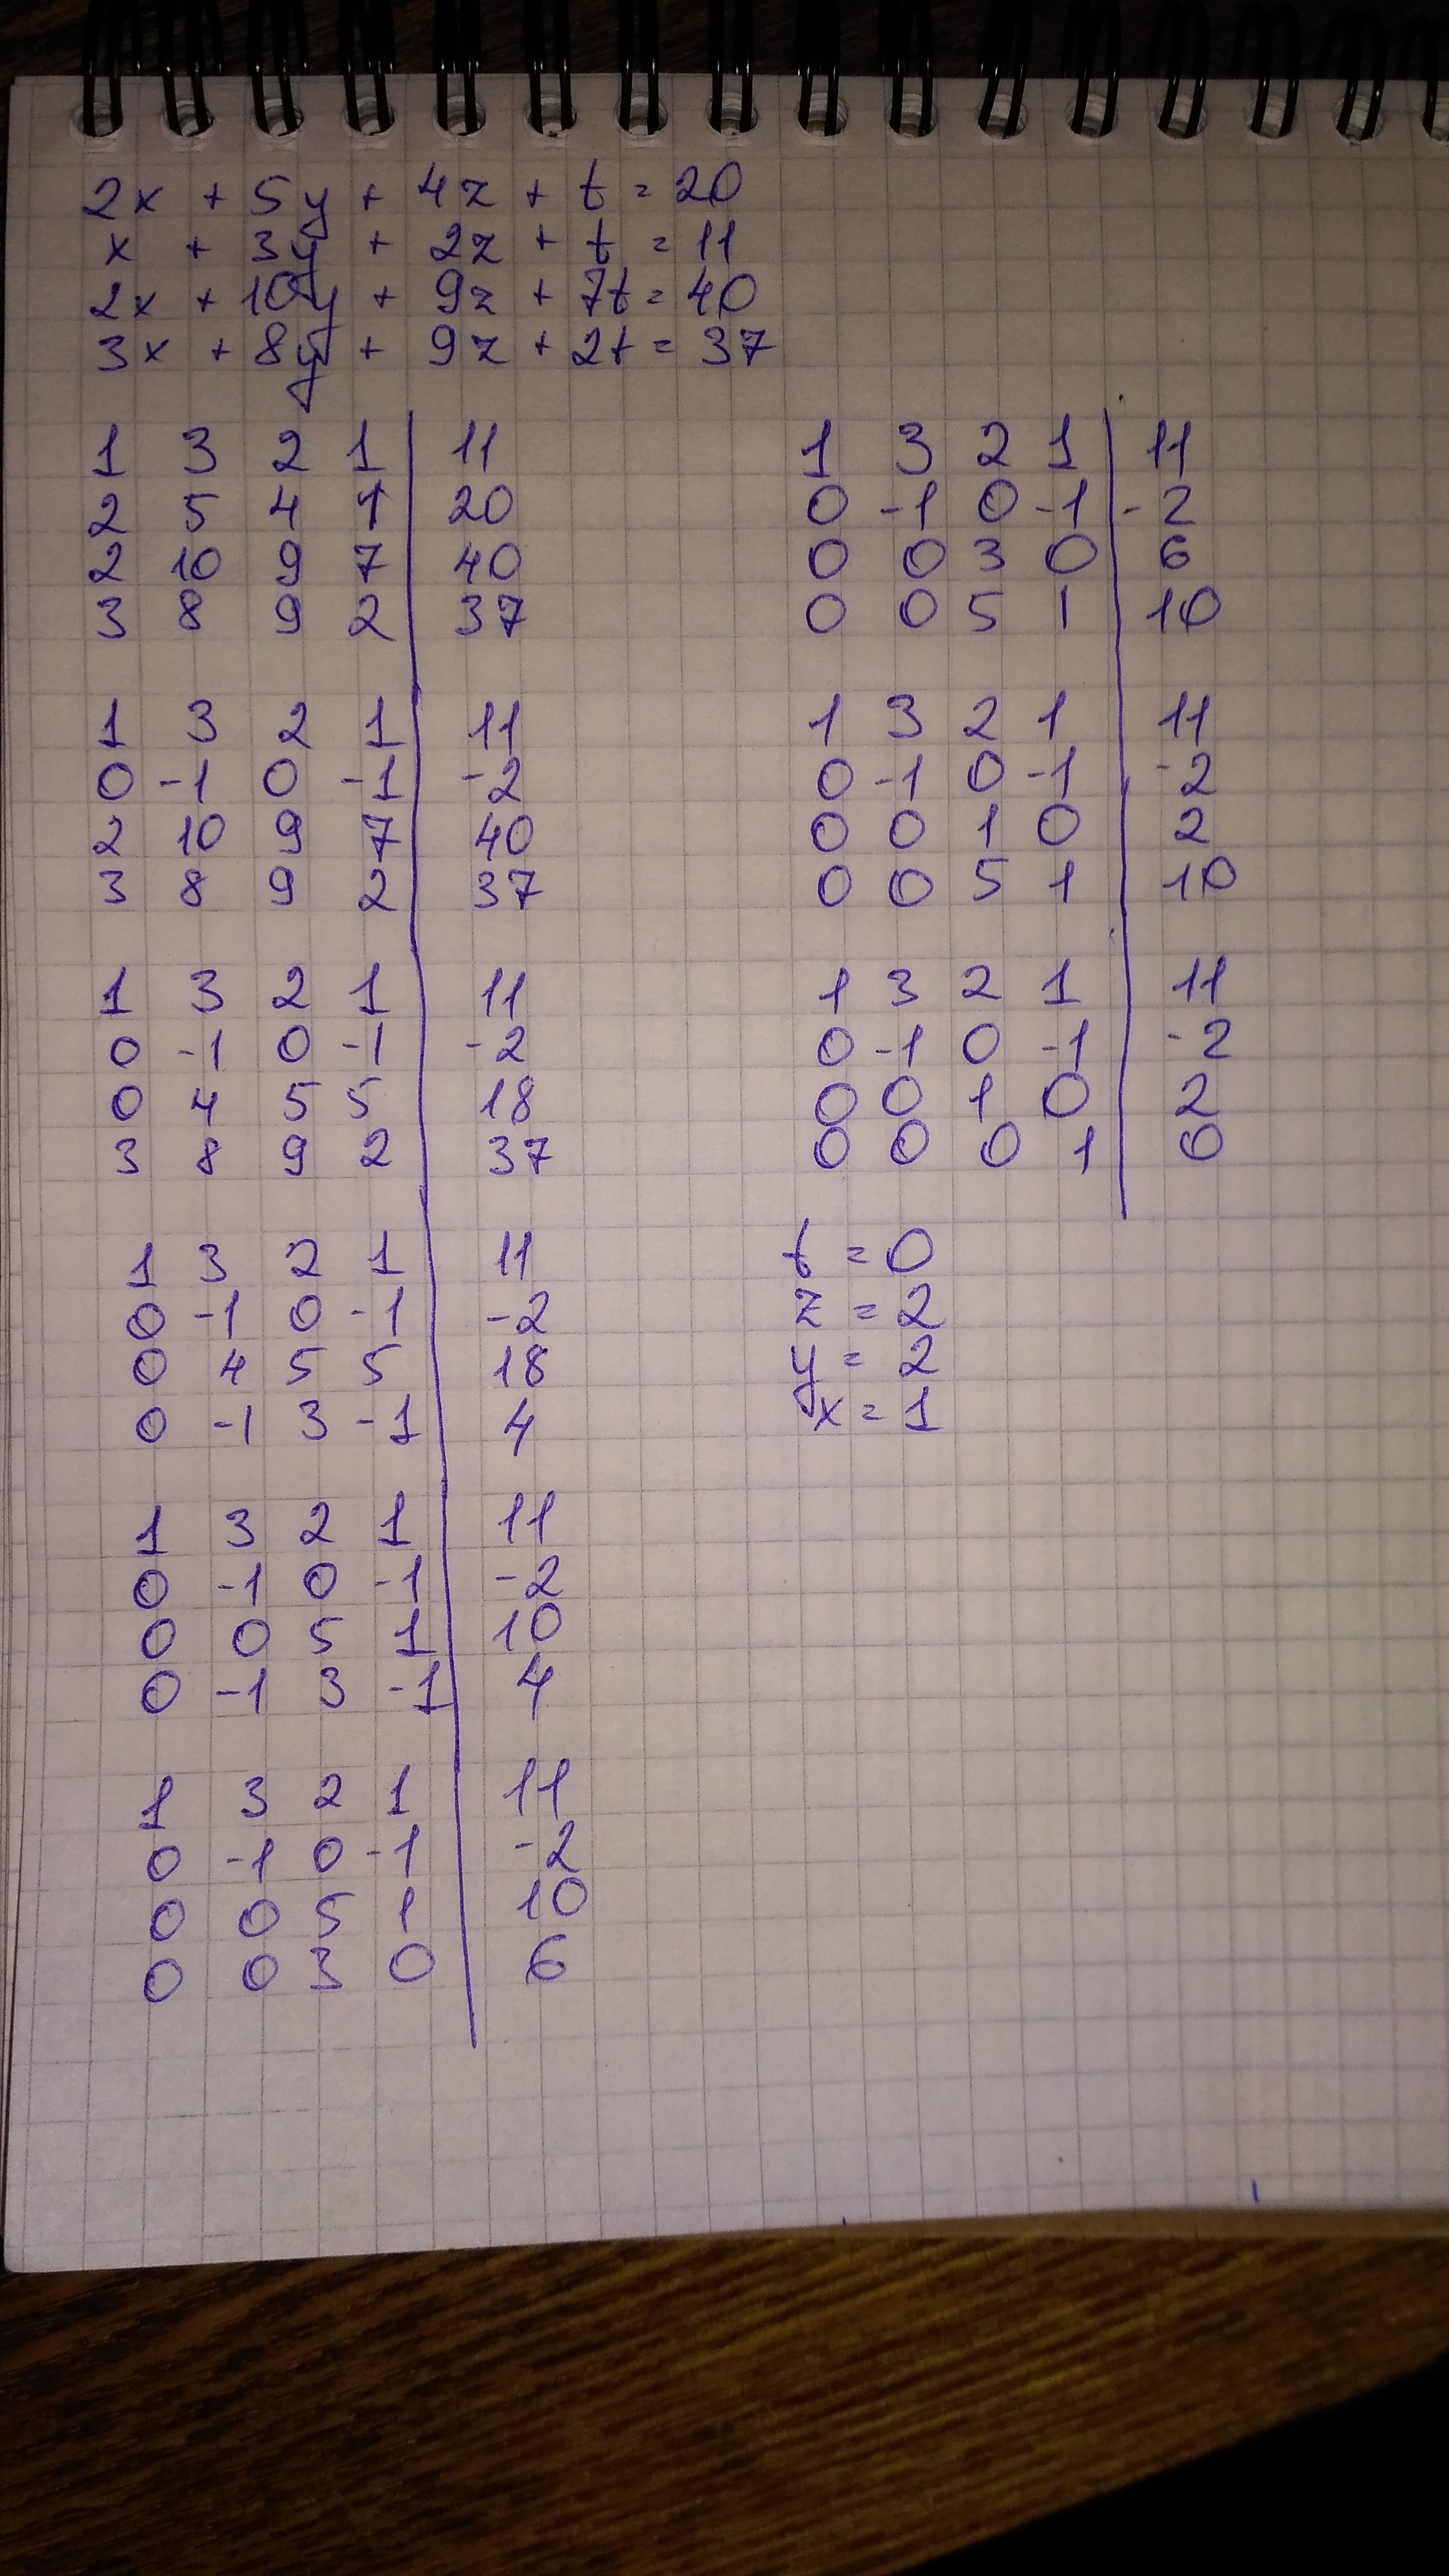 2x + 5y + 4z + t = 20
x + 3y + 2z + t = 11
2x + 10y + 9z + 7t = 40
3x + 8y + 9z + 2t = 37
1 3 2 1 | 11
2 5 4 1 | 20
2 10 9 7 | 40
3 8 9 2 | 37
1 3 2 1 | 11
0 -1 0 -1 | -2
2 10 9 7 | 40
3 8 9 2 | 37
1 3 2 1 | 11
0 -1 0 -1 | -2
0 4 5 5 | 18
3 8 9 2 | 37
1 3 2 1 | 11
0 -1 0 -1 | -2
0 4 5 5 | 18
0 -1 3 -1 | 4
1 3 2 1 | 11
0 -1 0 -1 | -2
0 0 5 1 | 10
0 -1 3 -1 | 4
1 3 2 1 | 11
0 -1 0 -1 | -2
0 0 5 1 | 10
0 0 3 0 | 6
1 3 2 1 | 11
0 -1 0 -1 | -2
0 0 3 0 | 6
0 0 5 1 | 10
1 3 2 1 | 11
0 -1 0 -1 | -2
0 0 1 0 | 2
0 0 5 1 | 10
1 3 2 1 | 11
0 -1 0 -1 | -2
0 0 1 0 | 2
0 0 0 1 | 0
t = 0
z = 2
y = 2
x = 1